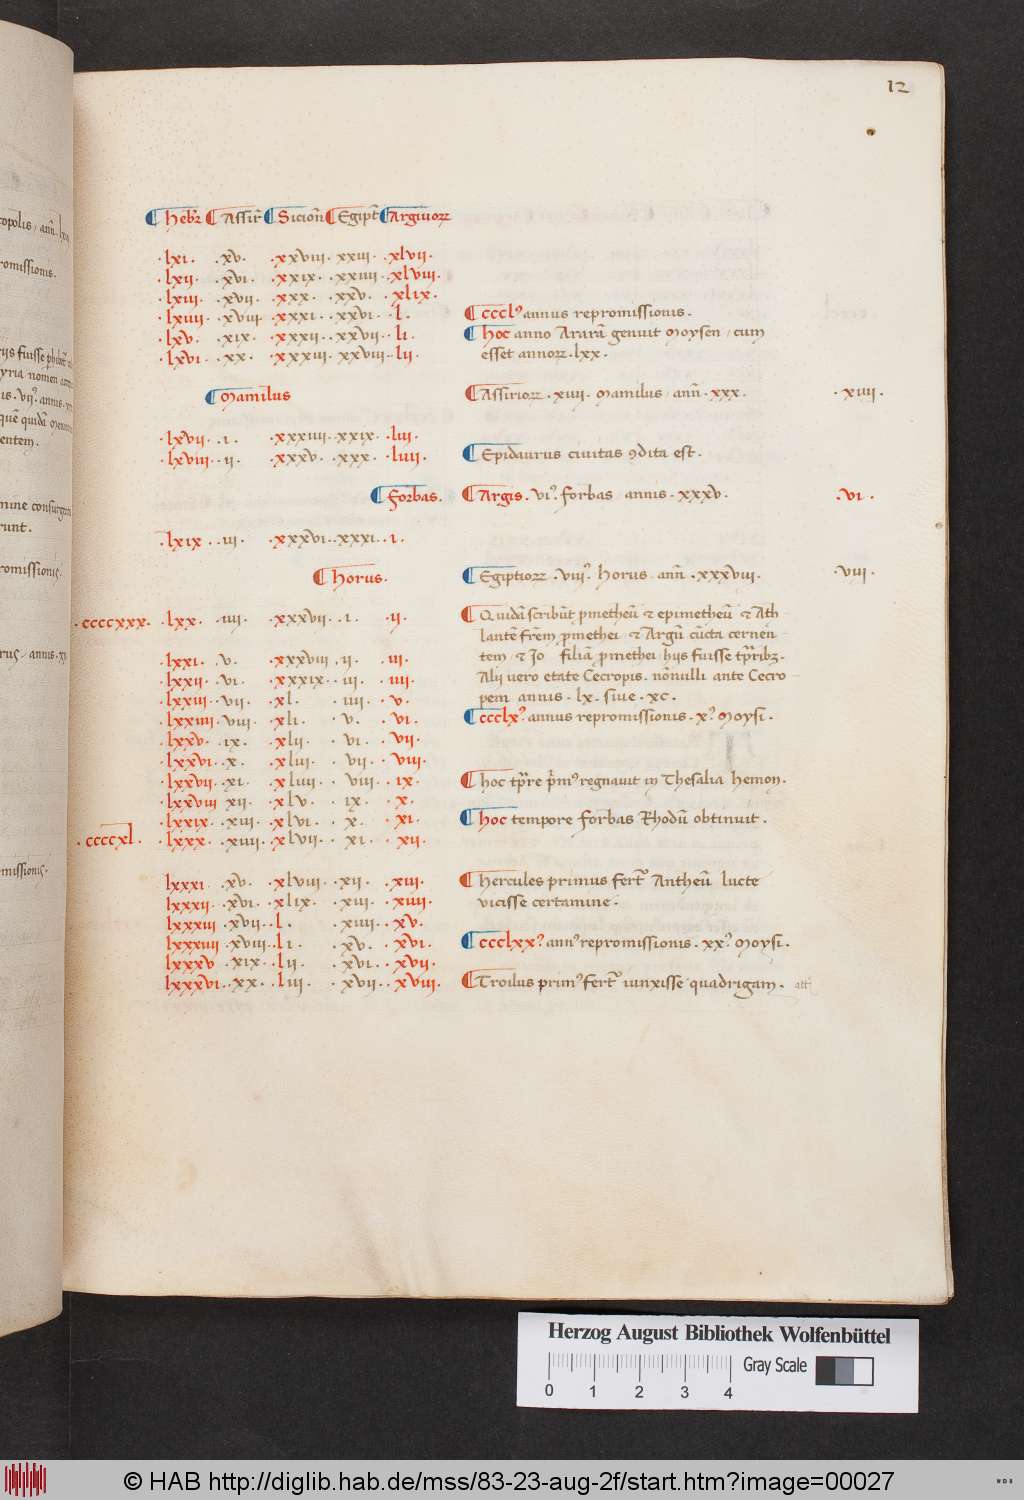 12
¶ Hebr̃ ¶ Assir̃ ¶ Sicion̄ ¶ Egipt̃ ¶ Argiuoꝝ
·lxi· ·xv· ·xxviii· xxiii· ·xlvii·
·lxii· ·xvi· ·xxix· ·xxiiii· ·xlviii·
·lxiii· ·xvii· ·xxx· ·xxv· ·xlix·
·lxiiii· ·xviii· ·xxxi· ·xxvi· ·l· ¶ ccclꝰ annus repromissionis·
·lxv· ·xix· ·xxxii· ·xxvii· ·li· ¶ Hoc anno Ararā genuit Moysen / cum
·lxvi· ·xx· ·xxxiii· xxviii· ·lii· esset annoꝝ ·lxx·
¶ Mamilus ¶ Assirioꝝ ·xiiii· Mamilus / ann̄ ·xxx· ·xiiii·
·lxvii· ·i· ·xxxiiii· xxix· ·liii·
·lxviii· ·ii· ·xxxv· ·xxx· ·liiii· ¶ Epidaurus ciuitas ꝯdita est·
¶ Forbas· ¶ Argis· viꝰ· forbas / annis ·xxxv· ·vi·
·lxix· ·iii· ·xxxvi· ·xxxi· ·i·
¶ Horus· ¶ Egiptioꝝ ·viiiꝰ· Horus / ann̄ ·xxxviii· ·viii·
·ccccxxx· ·lxx· ·iiii· ·xxxvii· ·i· ·ii· ¶ Quidā scribūt ꝓmetheū & epimetheū & Ath
lantē frēm ꝓmethei / & Argū cūcta cernen
tem / & Io filiā ꝓmethei hijs fuisse tꝑribꝫ·
·lxxi· ·v· ·xxxviii· ·ii· ·iii·
·lxxii· ·vi· ·xxxix· ·iii· ·iiii· Alij uero etate Cecropis· nōnulli ante Cecro
·lxxiii· ·vii· ·xl· ·iiii· ·v· pem annis ·lx· siue ·xc·
·lxxiiii· ·viii· ·xli· ·v· ·vi· ¶ ccclxꝰ· annus repromissionis· xꝰ· Moysi·
·lxxv· ·ix· ·xlii· ·vi· ·vii·
·lxxvi· ·x· ·xliii· ·vii· ·viii·
·lxxvii· ·xi· ·xliiii· ·viii· ·ix· ¶ Hoc tꝑre pͥmꝰ regnauit in Thesalia Hemon·
·lxxviii· xii· ·xlv· ·ix· ·x·
·lxxix· ·xiii· ·xlvi· ·x· ·xi· ¶ Hoc tempore forbas Rhodū obtinuit·
·ccccxl· ·lxxx· ·xiiii· ·xlvii· ·xi· ·xii·
lxxxi· ·xv· ·xlviii· ·xii· ·xiii· ¶ Hercules primus fert᷑ Antheū lucte
lxxxii· ·xvi· ·xlix· ·xiii· ·xiiii· vicisse certamine·
lxxxiii· ·xvii· ·l· ·xiiii· ·xv·
lxxxiiii· ·xviii· ·li· ·xv· ·xvi· ¶ ccclxxꝰ annꝰ repromissionis· xxꝰ· Moysi·
lxxxv· ·xix· ·lii· ·xvi· ·xvii·
lxxxvi· ·xx· ·liii· ·xvii· ·xviii· ¶ Troilus primꝰ fert᷑ iunxisse quadrigam·
Herzog August Bibliothek Wolfenbüttel
Gray Scale
0 1 2 3 4
© HAB http://diglib.hab.de/mss/83-23-aug-2f/start.htm?image=00027